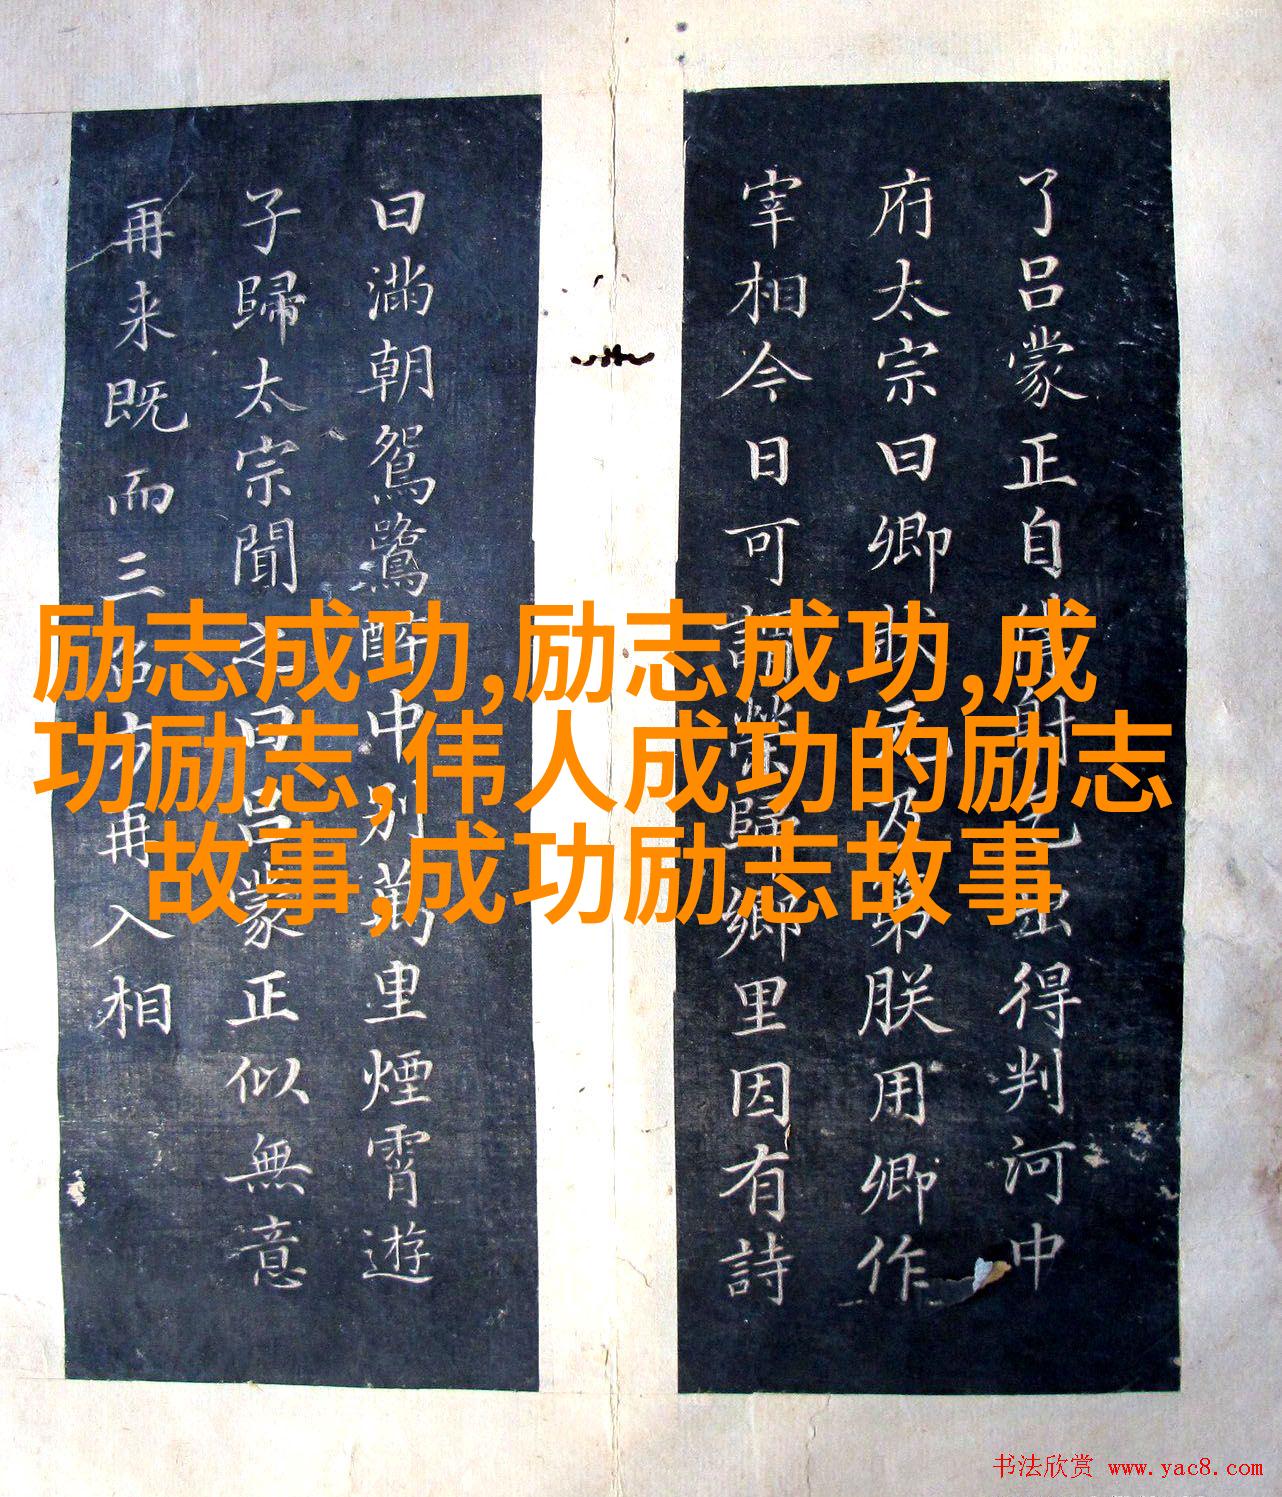 了吕蒙正自射出得判河中
府太宗曰卿狀元及第朕用卿作
宰相今日可謂榮歸鄉里因有詩
曰滿朝鴛鷺醉中别萬里煙霄遊
子歸太宗聞之曰吕蒙正似無意
再来既而三召方再入相
励志成功,励志成功,成
功励志,伟人成功的励志
故事,成功励志故事
书法欣赏 www.yac8.com